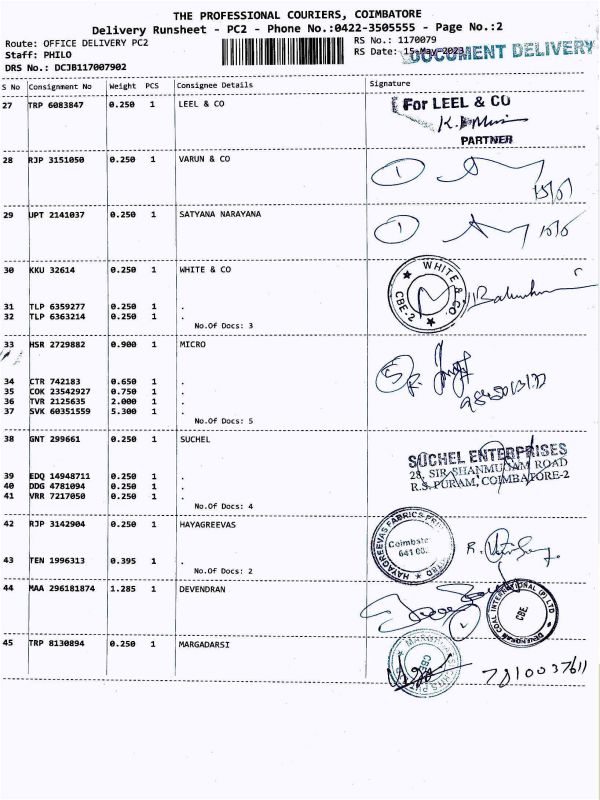 THE PROFESSIONAL COURIERS, COIMBATORE
Delivery Runsheet - PC2 - Phone No.:0422-3505555 - Page No.:2
Route: OFFICE DELIVERY PC2
Staff: PHILO
DRS No.: DCJB117007902
RS No.: 1170079
RS Date: 15-May-2023
DOCUMENT DELIVERY
S No Consignment No Weight PCS Consignee Details Signature
27 TRP 6083847 0.250 1 LEEL & CO
For LEEL & CO
PARTNER
28 RJP 3151050 0.250 1 VARUN & CO
1
29 UPT 2141037 0.250 1 SATYANA NARAYANA
1
30 KKU 32614 0.250 1 WHITE & CO
WHITE & CO.
CBE-2
31 TLP 6359277 0.250 1 .
32 TLP 6363214 0.250 1 .
No.Of Docs: 3
33 HSR 2729882 0.900 1 MICRO
5
34 CTR 742183 0.650 1 .
35 COK 23542927 0.750 1 .
36 TVR 2125635 2.000 1 .
37 SVK 60351559 5.300 1 .
No.Of Docs: 5
38 GNT 299661 0.250 1 SUCHEL
SUCHEL ENTERPRISES
28, SIR SHANMUGAM ROAD
R.S. PURAM, COIMBATORE-2
39 EDQ 14948711 0.250 1 .
40 DDG 4781094 0.250 1 .
41 VRR 7217050 0.250 1 .
No.Of Docs: 4
42 RJP 3142904 0.250 1 HAYAGREEVAS
HAYAGREEVAS FABRICS
Coimbato
641 00
43 TEN 1996313 0.395 1 .
No.Of Docs: 2
44 MAA 296181874 1.285 1 DEVENDRAN
COAL INTERNATIONAL (P) LTD
CBE
45 TRP 8130894 0.250 1 MARGADARSI
7810037611